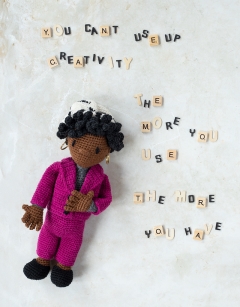 YOU CAN'T USE UP
CREATIVITY
THE
MORE YOU
USE
THE MORE
YOU HAVE